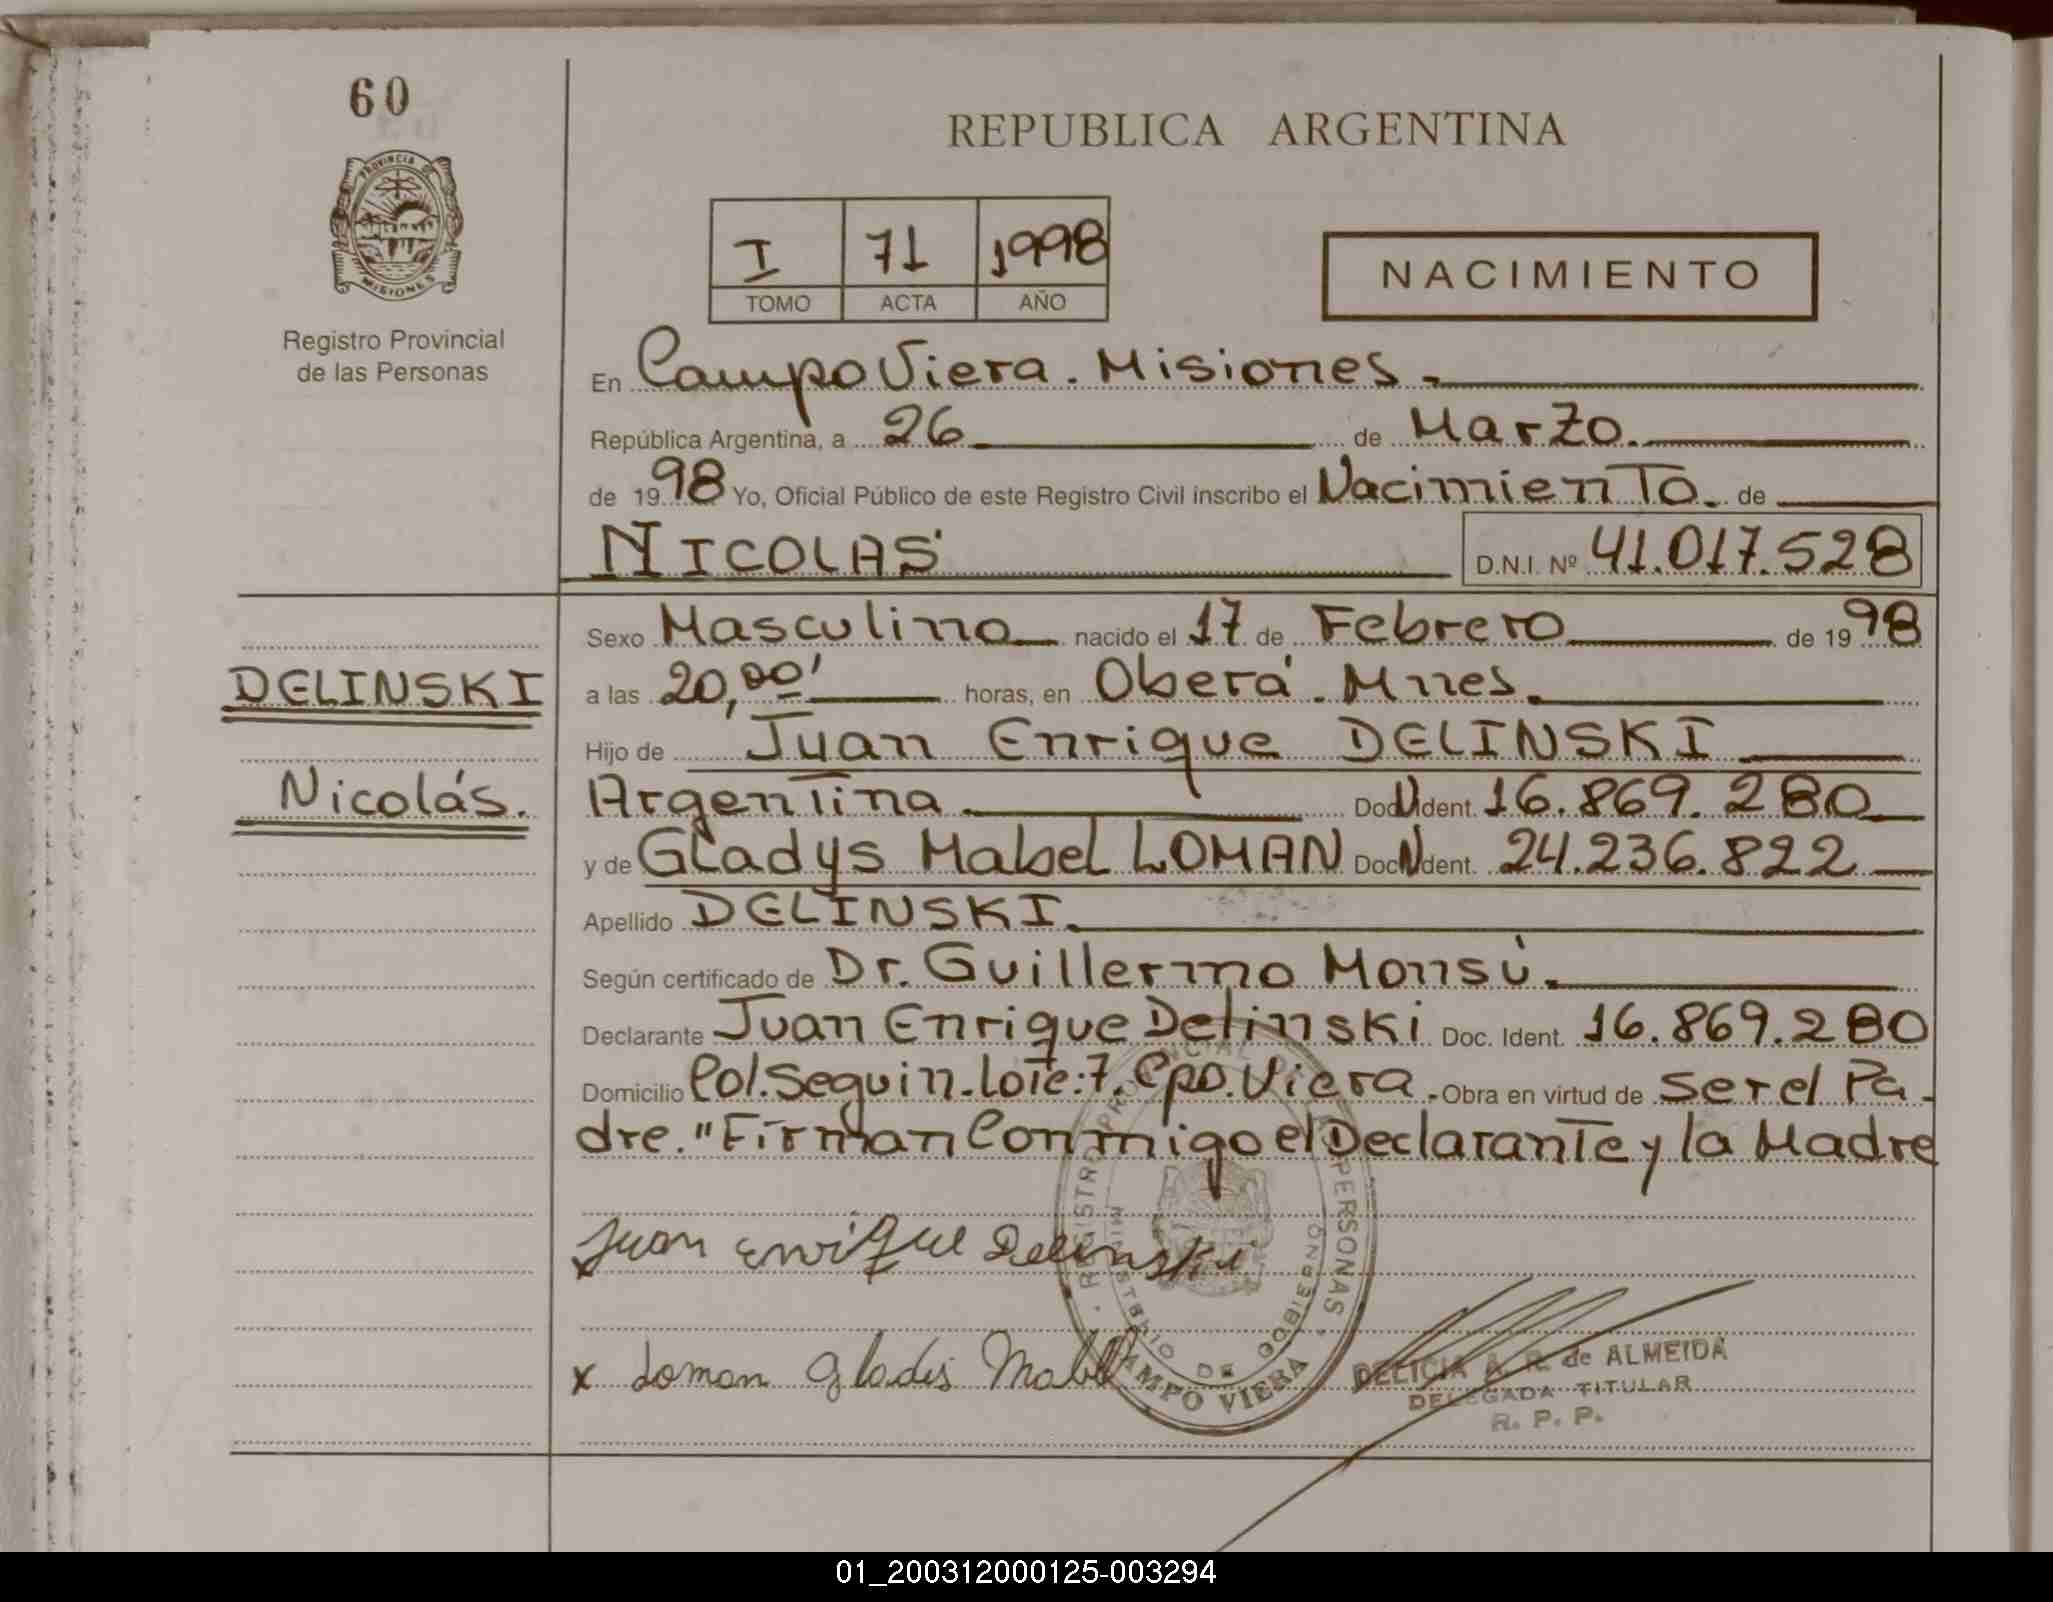 60
REPUBLICA ARGENTINA
PROVINCIA DE
MISIONES
Registro Provincial
de las Personas
I 71 1998
TOMO ACTA AÑO
NACIMIENTO
En Campo Viera. Misiones.
República Argentina, a 26 de Marzo.
de 1998 Yo, Oficial Público de este Registro Civil inscribo el Nacimiento. de
NICOLAS D.N.I. Nº 41.017.528
Sexo Masculino nacido el 17 de Febrero de 1998
DELINSKI
a las 20,00' horas, en Oberá. Mnes.
Hijo de Juan Enrique DELINSKI
Nicolás.
Argentina. Doc. Ident. 16.869.280
y de Gladys Mabel LOMAN Doc. Ident. 24.236.822
Apellido DELINSKI.
Según certificado de Dr. Guillermo Monsú.
Declarante Juan Enrique Delinski Doc. Ident. 16.869.280
Domicilio Col. Seguin. Lote:7. Cpo. Viera. Obra en virtud de ser el Pa-
dre. "Firman Conmigo el Declarante y la Madre
x Juan Enrique Delinski
x Loman Gladis Mabel
REGISTRO PROVINCIAL DE LAS PERSONAS
MINISTERIO DE GOBIERNO
CAMPO VIERA
DELICIA A. R. de ALMEIDA
DELEGADA TITULAR
R. P. P.
01_200312000125-003294